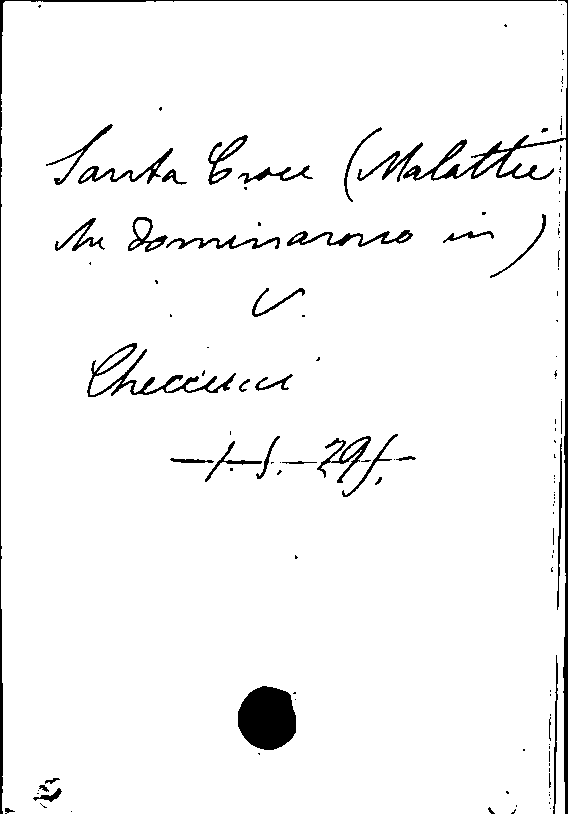 Santa Croce (Malattie
che dominarono in)
V.
Checcucci